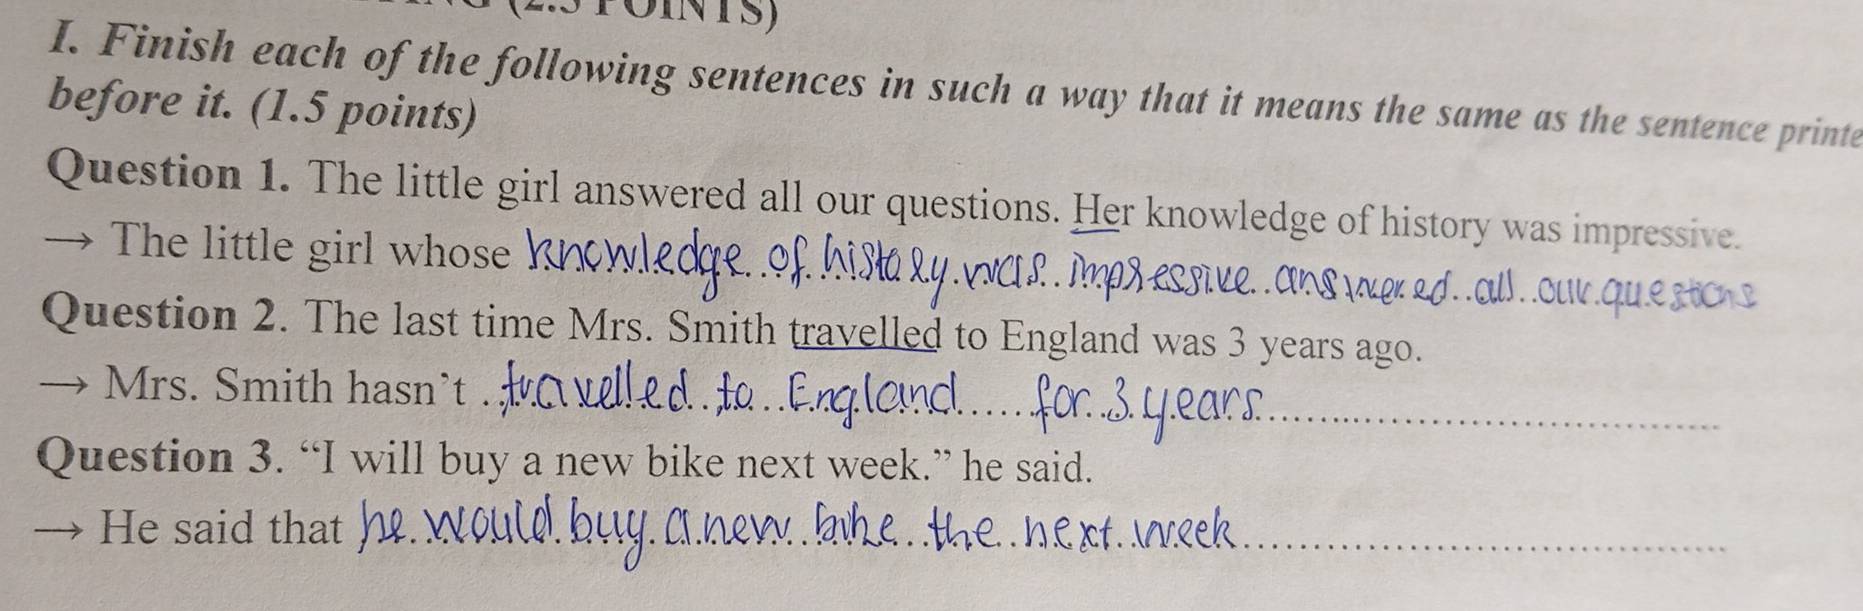 (2.5 POINTS)
I. Finish each of the following sentences in such a way that it means the same as the sentence printe
before it. (1.5 points)
Question 1. The little girl answered all our questions. Her knowledge of history was impressive.
→ The little girl whose knowledge of history was impressive answered all our questions
Question 2. The last time Mrs. Smith travelled to England was 3 years ago.
→ Mrs. Smith hasn't travelled to England for 3 years
Question 3. “I will buy a new bike next week.” he said.
→ He said that he would buy a new bike the next week